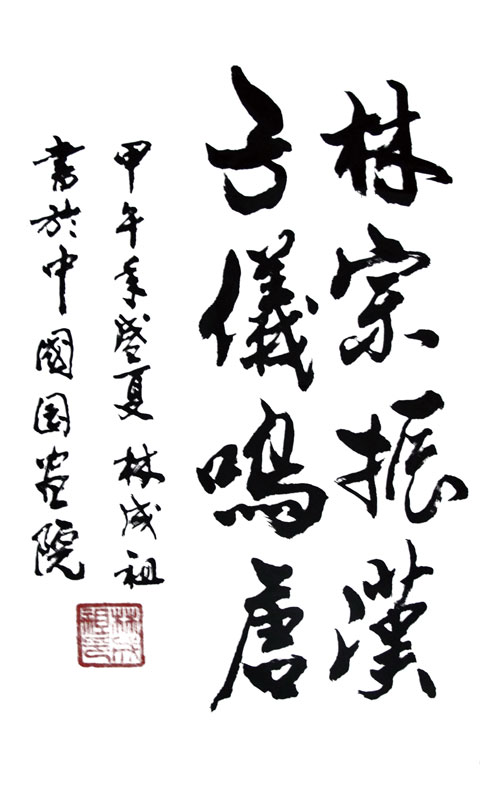 林宗振漢
子儀鳴唐
甲午年盛夏 林成祖
書於中國国畫院
林成祖印